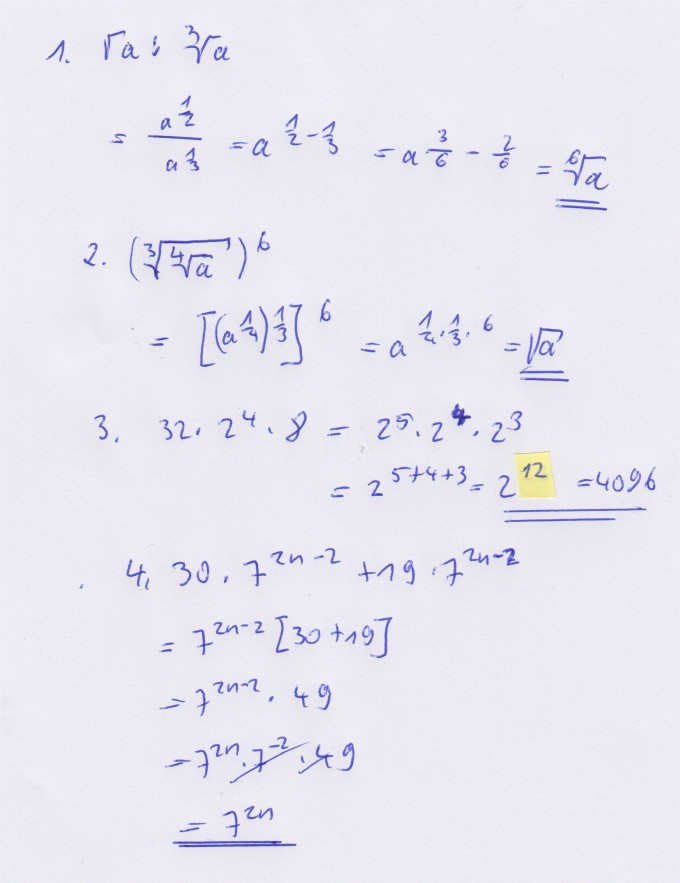 1. √a : ∛a
= a^(1/2) / a^(1/3) = a^(1/2 - 1/3) = a^(3/6 - 2/6) = ⁶√a
2. (∛(⁴√a))^6
= [(a^(1/4))^(1/3)]^6 = a^(1/4 · 1/3 · 6) = √a
3. 32 · 2^4 · 8 = 2^5 · 2^4 · 2^3
= 2^(5+4+3) = 2^12 = 4096
4. 30 · 7^(2n-2) + 19 · 7^(2n-2)
= 7^(2n-2) [30 + 19]
= 7^(2n-2) · 49
= 7^(2n) · 7^(-2) · 49
= 7^(2n)